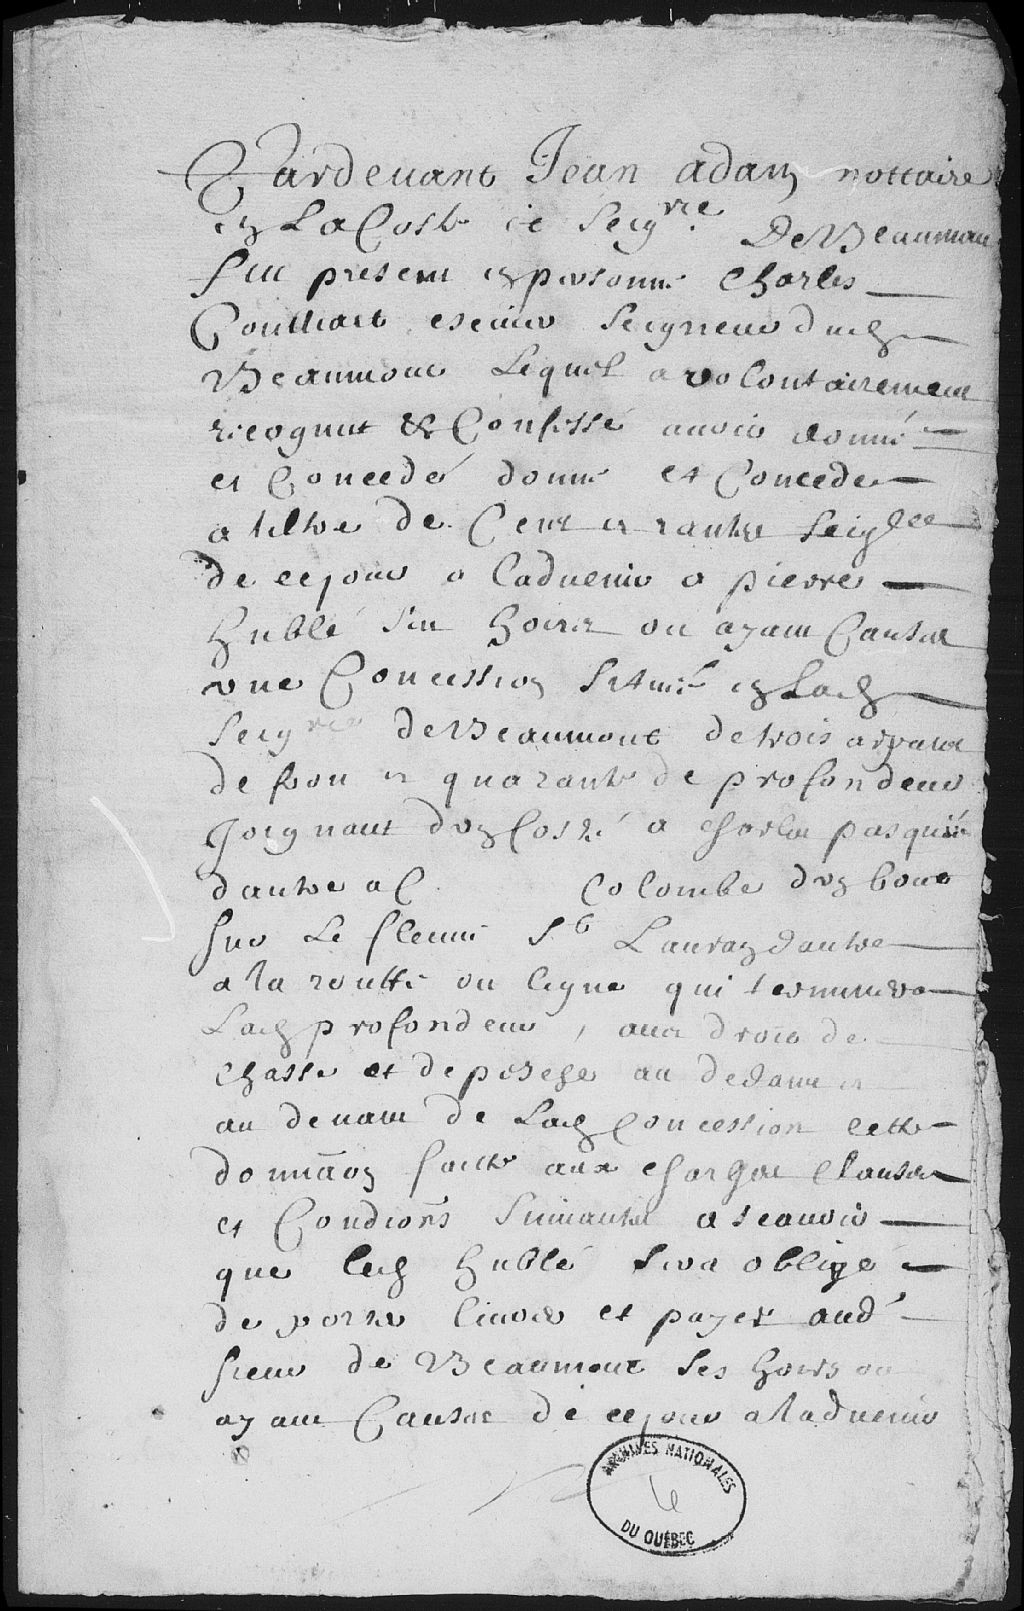 Pardevant Jean adam nottaire
en La Coste et Seigrie De Beaumont
fut present en personne Charles
Couillart escuier Seigneur dud
Beaumont Lequel a volontairement
recognut & Confessé avoir donné
et Concedé donne et Concede
a tiltre de Cens et rantes Seiglles
de ce jour a Ladvenir a pierre
hublé Ses hoirs ou ayant Causes
une Concession Situeé en Lad
Seigrie de Beaumont de trois arpans
de fron et quarante de profondeur
Joignant dun Costé a Charles pasquié
dautre a L Colombe dun bout
sur Le fleuve St Lauran dautre
a la routte ou ligne qui terminera
Lad profondeur, avec droit de
Chasse et de pesche au dedans et
au devant de Lad Concession Cette
donnãon faitte aux Charges Clauses
et Condiõns Suivantes a scavoir
que led hublé sera obligé
de porter livrer et payer aud
sieur de Beaumont Ses hoirs ou
ayant Causes de ce jour a Ladvenir
ARCHIVES NATIONALES
DU QUÉBEC